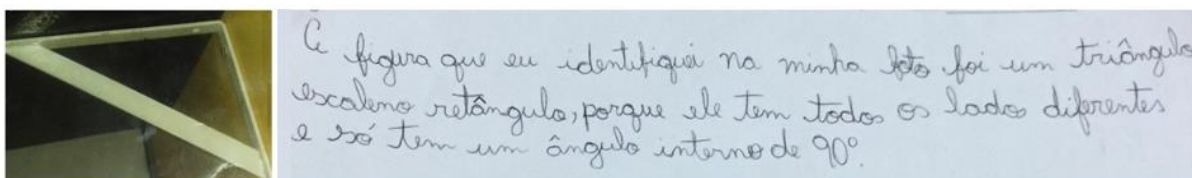 A figura que eu identifiquei na minha foto foi um triângulo
escaleno retângulo, porque ele tem todos os lados diferentes
e só tem um ângulo interno de 90°.